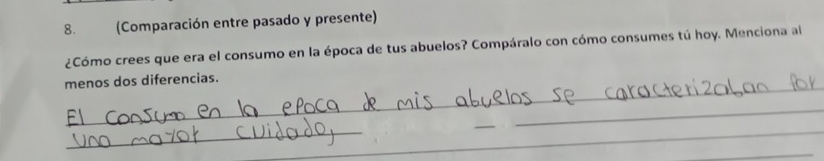 8. (Comparación entre pasado y presente)
¿Cómo crees que era el consumo en la época de tus abuelos? Compáralo con cómo consumes tú hoy. Menciona al
menos dos diferencias.
El consumo en la epoca de mis abuelos se caracterizaban por
uno mayor cuidado,